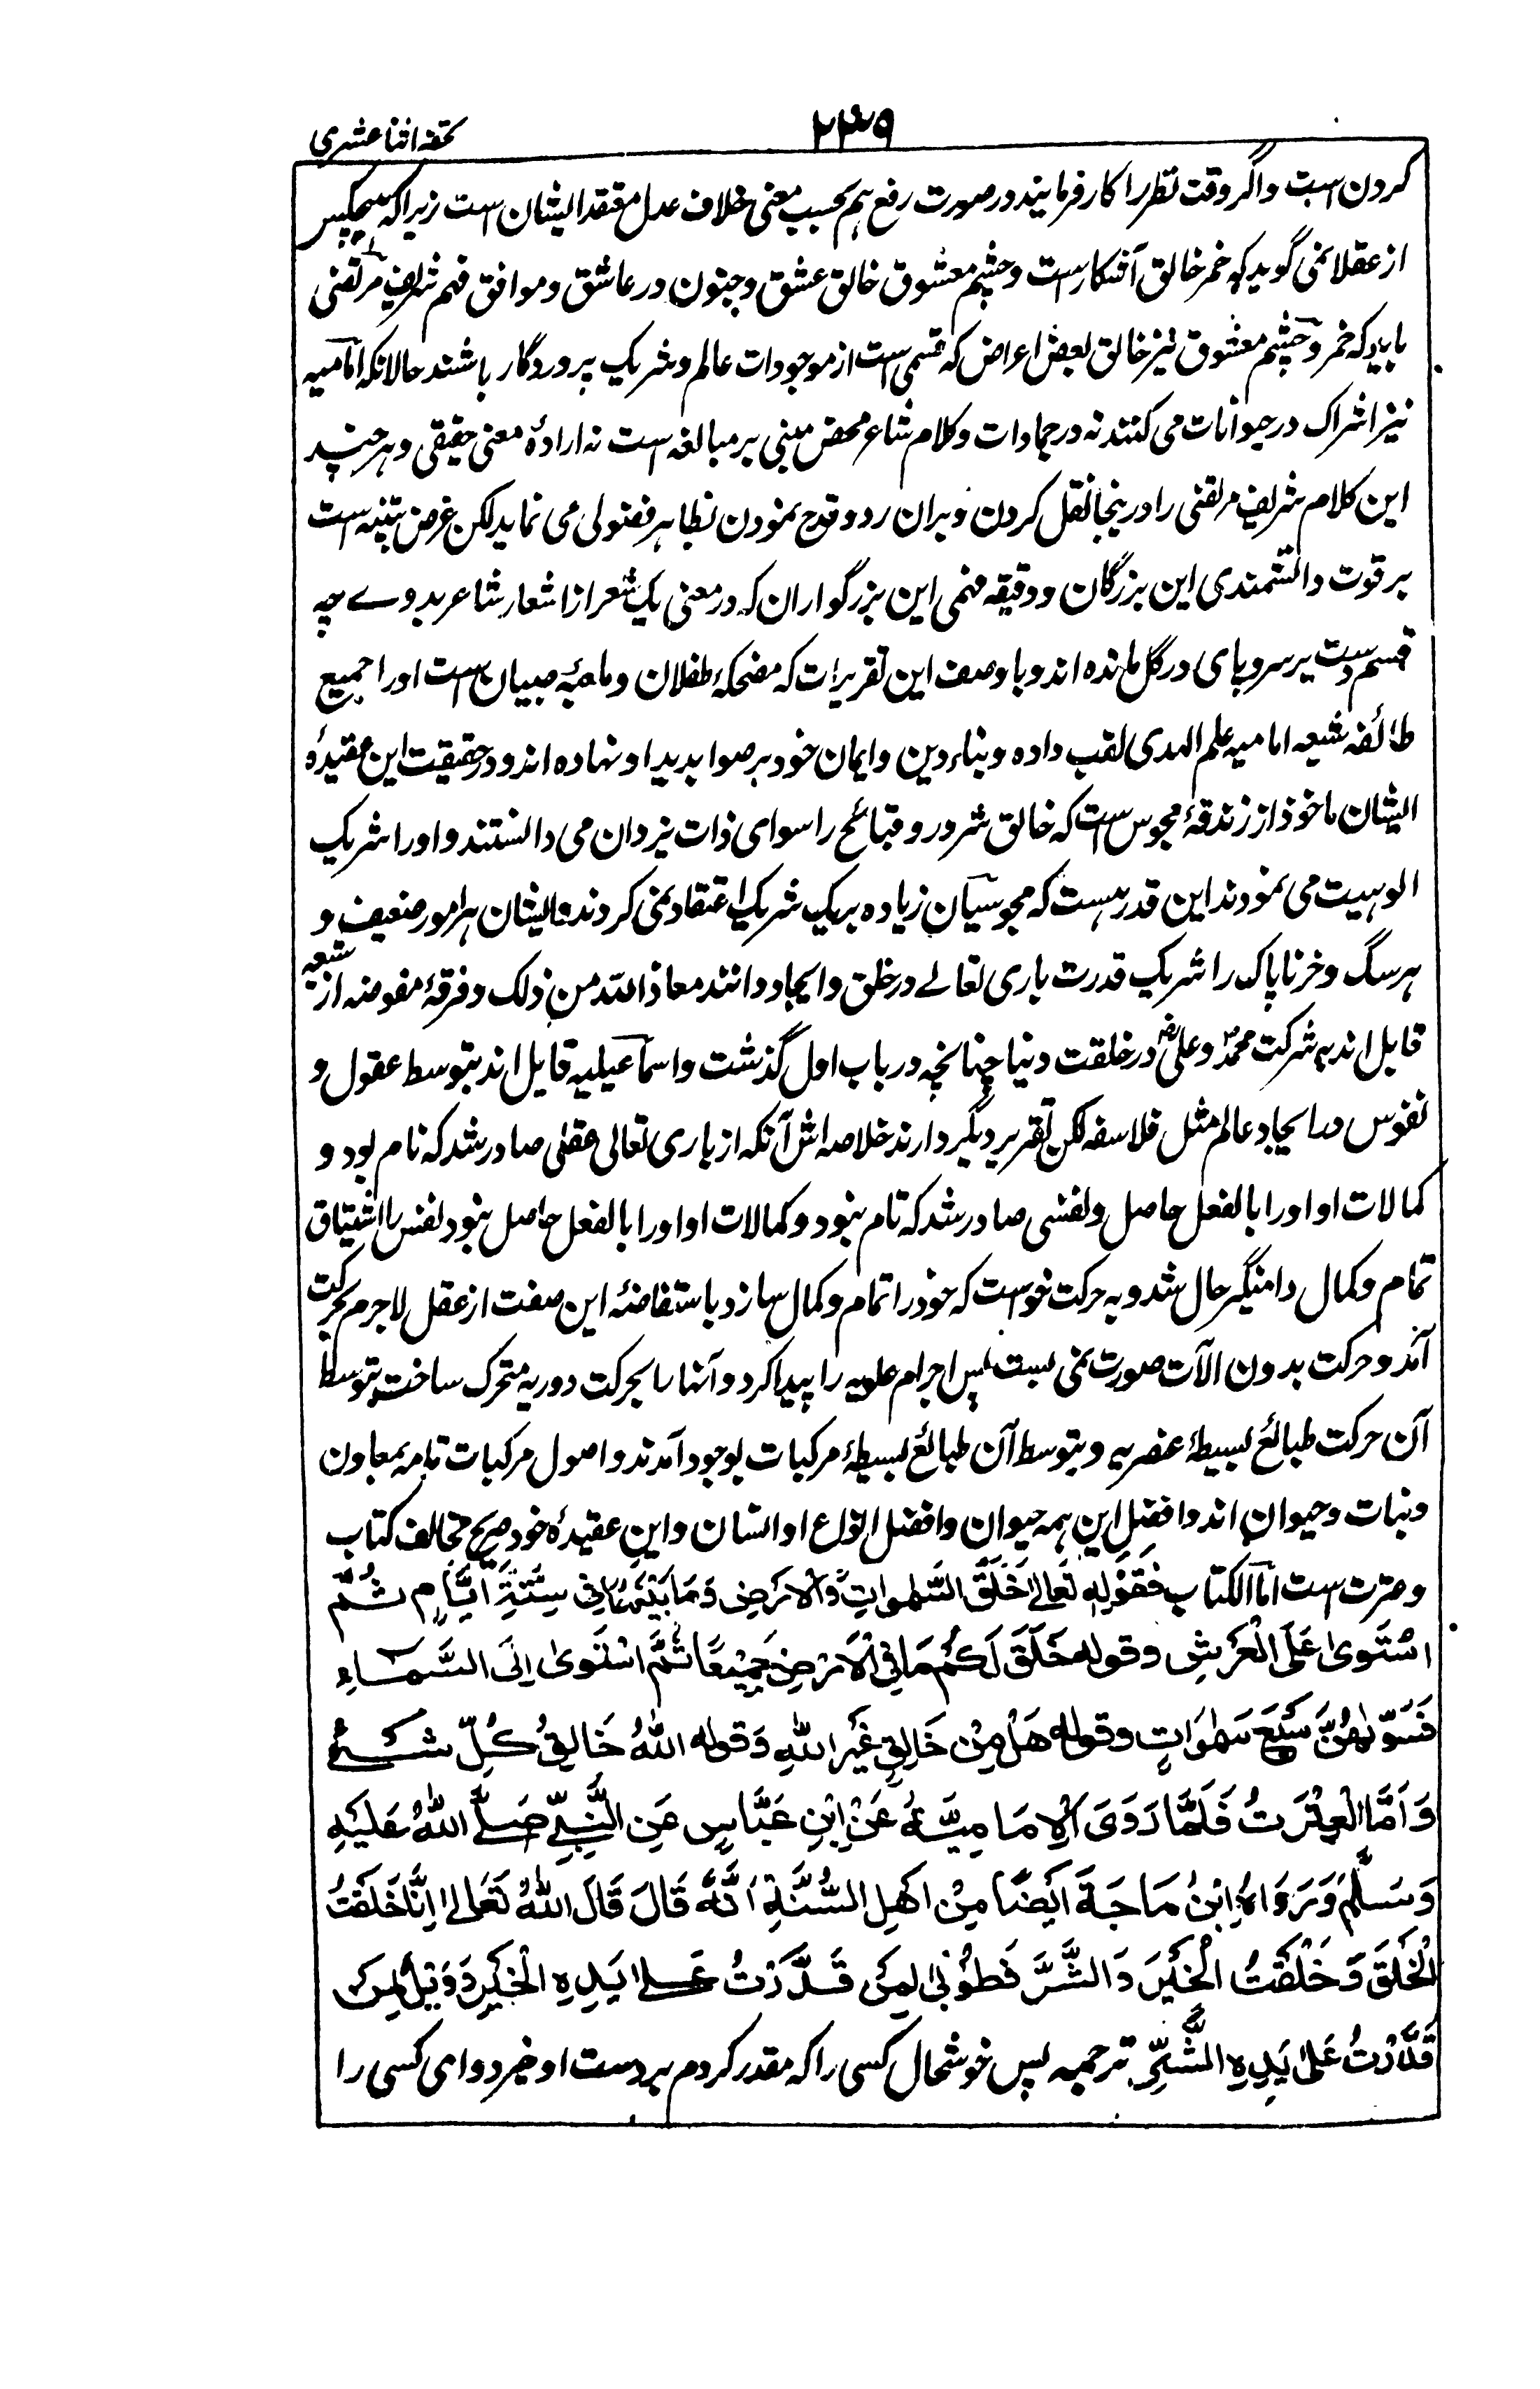 ۲۳۹
تحفہ اثنا عشری
کردن است و اگر وقت نظر را کار فرمایند در صورت رفع ہم بحسب معنی خلاف عدل معتقد ایشان است زیرا کہ ہیچکس
از عقلا نمی گوید کہ خمر خالق آفنکار است و چشم معشوق خالق عشق و جنون در عاشق و موافق فہم شریف مرتضی
باید کہ خمر و چشم معشوق نیز خالق بعض اعراض کہ قسمی است از موجودات عالم و شریک پروردگار باشند حالانکہ امامیہ
نیز اشراک در حیوانات می کنند نہ در جمادات و کلام شاعر محض مبنی بر مبالغہ است نہ ارادۂ معنی حقیقی و ہر چند
این کلام شریف مرتضی را درینجا نقل کردن و بران رد و قدح نمودن بظاہر فضولی می نماید لکن غرض تنبیہ است
بر قوت دانشمندی این بزرگان و دقیقہ فہمی این بزرگواران کہ در معنی یک شعر از اشعار شاعر بدوے چہ
قسم دست بر سر و پای در گل ماندہ اند و با وصف این تقریرات کہ مضحکۂ طفلان و ملعبۂ صبیان است او را جمیع
طائفہ شیعہ امامیہ علم الہدی لقب دادہ و بناء دین و ایمان خود بر صوابدید او نہادہ اند و در حقیقت این عقیدۂ
ایشان ماخوذ از زندقۂ مجوس است کہ خالق شرور و قبائح را سوای ذات یزدان می دانستند و او را شریک
الوہیت می نمودند این قدر ہست کہ مجوسیان زیادہ بر یک شریک اعتقاد نمی کردند و ایشان ہر امور ضعیف و
ہر سگ و خر ناپاک را شریک قدرت باری تعالے در خلق و ایجاد دانند معاذ اللہ من ذلک و فرقۂ مفوضہ از شیعہ
قایل اند بہ شرکت محمدؐ و علیؓ در خلقت دنیا چنانچہ در باب اول گذشت و اسماعیلیہ قایل اند بتوسط عقول و
نفوس در ایجاد عالم مثل فلاسفہ لکن تقریر دیگر دارند خلاصہ اش آنکہ از باری تعالی عقلی صادر شد کہ تام بود و
کمالات او او را بالفعل حاصل و نفسی صادر شد کہ تام نبود و کمالات او او را بالفعل حاصل نبود نفس را اشتیاق
تمام و کمال دامنگیر حال شد و بہ حرکت خواست کہ خود را تمام و کمال سازد باستفاضۂ این صفت از عقل لاجرم بحرکت
آمد و حرکت بدون آلات صورت نمی بست پس اجرام علویہ را پیدا کرد و آنہا را بحرکت دوریہ متحرک ساخت بتوسط
آن حرکت طبائع بسیطۂ عنصریہ و بتوسط آن طبائع بسیطۂ مرکبات بوجود آمدند و اصول مرکبات تامہ معاون
و نبات و حیوان اند و افضل این ہمہ حیوان و افضل انواع او انسان و این عقیدۂ خود صریح مخالف کتاب
و عترت است اما الکتاب فَقَوْلِهِ تَعَالٰے خَلَقَ السَّمٰوَاتِ وَالْاَرْضَ وَمَا بَيْنَهُمَا فِي سِتَّةِ اَيَّامٍ ثُمَّ
اسْتَوٰی عَلَی الْعَرْشِ وقوله خَلَقَ لَكُمْ مَا فِي الْاَرْضِ جَمِيْعًا ثُمَّ اسْتَوٰی اِلَی السَّمَاءِ
فَسَوّٰهُنَّ سَبْعَ سَمٰوَاتٍ وقوله هَلْ مِنْ خَالِقٍ غَيْرُ اللّٰهِ وَقوله اللّٰهُ خَالِقُ كُلِّ شَیْءٍ
وَاَمَّا الْعِتْرَتُ فَلَمَّا رَوَی الْاِمَامِيَّةُ عَنْ اِبْنِ عَبَّاسٍ عَنِ النَّبِيِّ صَلَّے اللّٰهُ عَلَيْهِ
وَسَلَّمَ وَرَوَاهُ اِبْنُ مَاجَةَ اَيْضًا مِنْ اَهْلِ السُّنَّةِ اَنَّهُ قَالَ قَالَ اللّٰهُ تَعَالٰے اِنَّا خَلَقْتُ
الْخَلْقَ وَخَلَقْتُ الْخَيْرَ وَالشَّرَّ فَطُوْبٰی لِمَنْ قَدَّرْتُ عَلٰے يَدِهِ الْخَيْرِ وَوَيْلٌ لِمَنْ
قَدَّرْتُ عَلٰی يَدِهِ الشَّرِّ ترجمہ پس خوشحال کسی را کہ مقدر کردم بر دست او خیر و وای کسی را